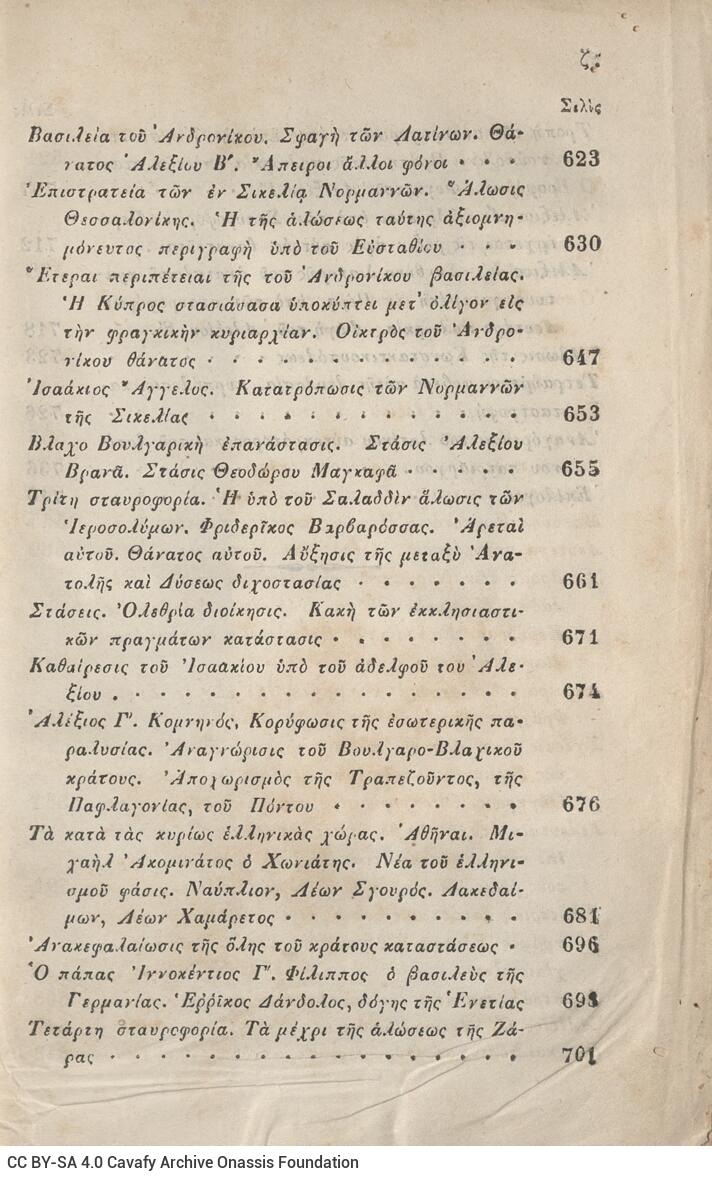 ζʹ.
Σελὶς
Βασιλεία τοῦ Ἀνδρονίκου. Σφαγὴ τῶν Λατίνων. Θά-
νατος Ἀλεξίου Βʹ. Ἄπειροι ἄλλοι φόνοι . . . 623
Ἐπιστρατεία τῶν ἐν Σικελίᾳ Νορμαννῶν. Ἅλωσις
Θεσσαλονίκης. Ἡ τῆς ἁλώσεως ταύτης ἀξιομνη-
μόνευτος περιγραφὴ ὑπὸ τοῦ Εὐσταθίου . . . 630
Ἕτεραι περιπέτειαι τῆς τοῦ Ἀνδρονίκου βασιλείας.
Ἡ Κύπρος στασιάσασα ὑποκύπτει μετ' ὀλίγον εἰς
τὴν φραγκικὴν κυριαρχίαν. Οἰκτρὸς τοῦ Ἀνδρο-
νίκου θάνατος . . . . . . . . . . . . . 647
Ἰσαάκιος Ἄγγελος. Κατατρόπωσις τῶν Νορμαννῶν
τῆς Σικελίας . . . . . . . . . . . . . 653
Βλαχο Βουλγαρικὴ ἐπανάστασις. Στάσις Ἀλεξίου
Βρανᾶ. Στάσις Θεοδώρου Μαγκαφᾶ . . . . . 655
Τρίτη σταυροφορία. Ἡ ὑπὸ τοῦ Σαλαδδὶν ἅλωσις τῶν
Ἱεροσολύμων. Φριδερῖκος Βαρβαρόσσας. Ἀρεταὶ
αὐτοῦ. Θάνατος αὐτοῦ. Αὔξησις τῆς μεταξὺ Ἀνα-
τολῆς καὶ Δύσεως διχοστασίας . . . . . . . 661
Στάσεις. Ὀλεθρία διοίκησις. Κακὴ τῶν ἐκκλησιαστι-
κῶν πραγμάτων κατάστασις . . . . . . . . 671
Καθαίρεσις τοῦ Ἰσαακίου ὑπὸ τοῦ ἀδελφοῦ του Ἀλε-
ξίου . . . . . . . . . . . . . . . . . 674
Ἀλέξιος Γʹ. Κομνηνός, Κορύφωσις τῆς ἐσωτερικῆς πα-
ραλυσίας. Ἀναγνώρισις τοῦ Βουλγαρο-Βλαχικοῦ
κράτους. Ἀποχωρισμὸς τῆς Τραπεζοῦντος, τῆς
Παφλαγονίας, τοῦ Πόντου . . . . . . . . 676
Τὰ κατὰ τὰς κυρίως ἑλληνικὰς χώρας. Ἀθῆναι. Μι-
χαὴλ Ἀκομινάτος ὁ Χωνιάτης. Νέα τοῦ ἑλληνι-
σμοῦ φάσις. Ναύπλιον, Λέων Σγουρός. Λακεδαί-
μων, Λέων Χαμάρετος . . . . . . . . . . 681
Ἀνακεφαλαίωσις τῆς ὅλης τοῦ κράτους καταστάσεως . 696
Ὁ πάπας Ἰννοκέντιος Γʹ. Φίλιππος ὁ βασιλεὺς τῆς
Γερμανίας. Ἐρρῖκος Δάνδολος, δόγης τῆς Ἑνετίας 698
Τετάρτη σταυροφορία. Τὰ μέχρι τῆς ἁλώσεως τῆς Ζά-
ρας . . . . . . . . . . . . . . . . . . 701
CC BY-SA 4.0 Cavafy Archive Onassis Foundation